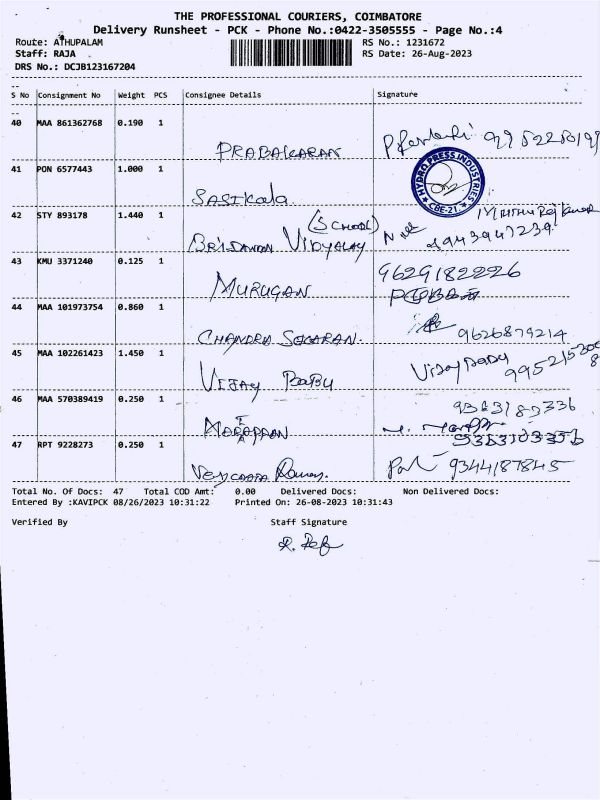 THE PROFESSIONAL COURIERS, COIMBATORE
Delivery Runsheet - PCK - Phone No.:0422-3505555 - Page No.:4
Route: ATHUPALAM RS No.: 1231672
Staff: RAJA RS Date: 26-Aug-2023
DRS No.: DCJB123167204
S No Consignment No Weight PCS Consignee Details Signature
40 MAA 861362768 0.190 1
PRABAKARAN
41 PON 6577443 1.000 1
HYDRO PRESS INDUSTRIES CBE-21.
SASIKala
42 STY 893178 1.440 1
(SCHOOL)
VIDYALAY
43 KMU 3371240 0.125 1 9629182226
MURUGAN
44 MAA 101973754 0.860 1
CHANDRA SEGARAN. 9626879214
45 MAA 102261423 1.450 1
VIJAY BABU Vijay Babu
46 MAA 570389419 0.250 1
MARAPPAN
47 RPT 9228273 0.250 1
9344187845
Total No. Of Docs: 47 Total COD Amt: 0.00 Delivered Docs: Non Delivered Docs:
Entered By :KAVIPCK 08/26/2023 10:31:22 Printed On: 26-08-2023 10:31:43
Verified By Staff Signature